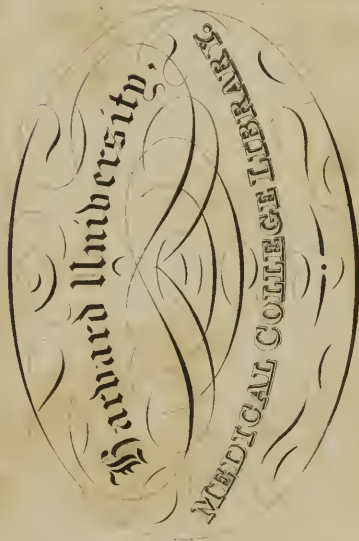 Harvard University.
MEDICAL COLLEGE LIBRARY.